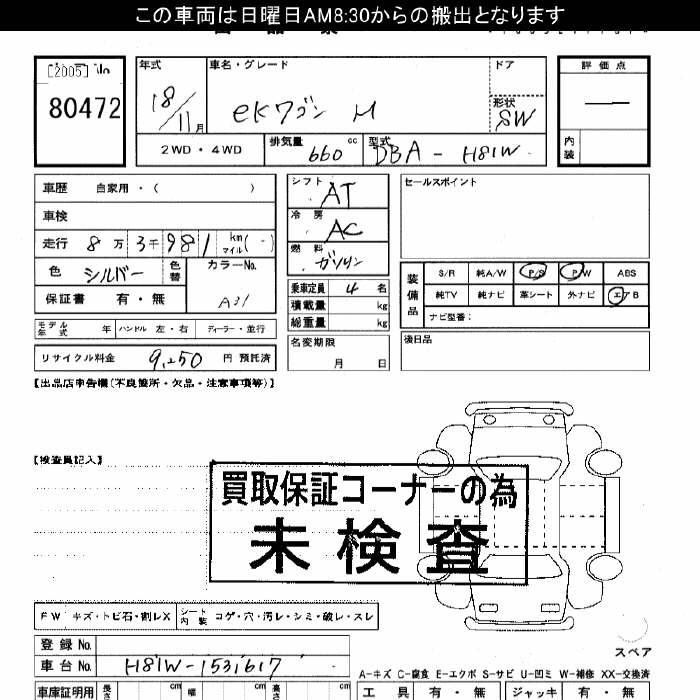 この車両は日曜日AM8:30からの搬出となります
[2005] No
80472
年式 18/11月
車名・グレード eKワゴン M
ドア
形状 SW
評価点 —
内装
2WD・4WD
排気量 660 cc
型式 DBA-H81W
車歴 自家用・( )
車検
走行 8万3千981 km マイル(-)
色 シルバー 色替 カラーNo. A31
保証書 有・無
シフト AT
冷房 AC
燃料 ガソリン
乗車定員 4名
積載量 kg
総重量 kg
セールスポイント
装備品
S/R 純A/W P/S P/W ABS
純TV 純ナビ 革シート 外ナビ エアB
ナビ型番:
モデル年式 年 ハンドル 左・右 ディーラー・並行
名変期限 月 日
後日品
リサイクル料金 9,250 円 預託済
【出品店申告欄(不良箇所・欠品・注意事項等)】
【検査員記入】
買取保証コーナーの為
未検査
FW キズ・トビ石・割レX シート内装 コゲ・穴・汚レ・シミ・破レ・スレ
登録No.
車台No. H81W-1531617
スペア
A-キズ C-腐食 E-エクボ S-サビ U-凹ミ W-補修 XX-交換済
車庫証明用 長さ cm 幅 cm 高さ cm
工具 有・無 ジャッキ 有・無